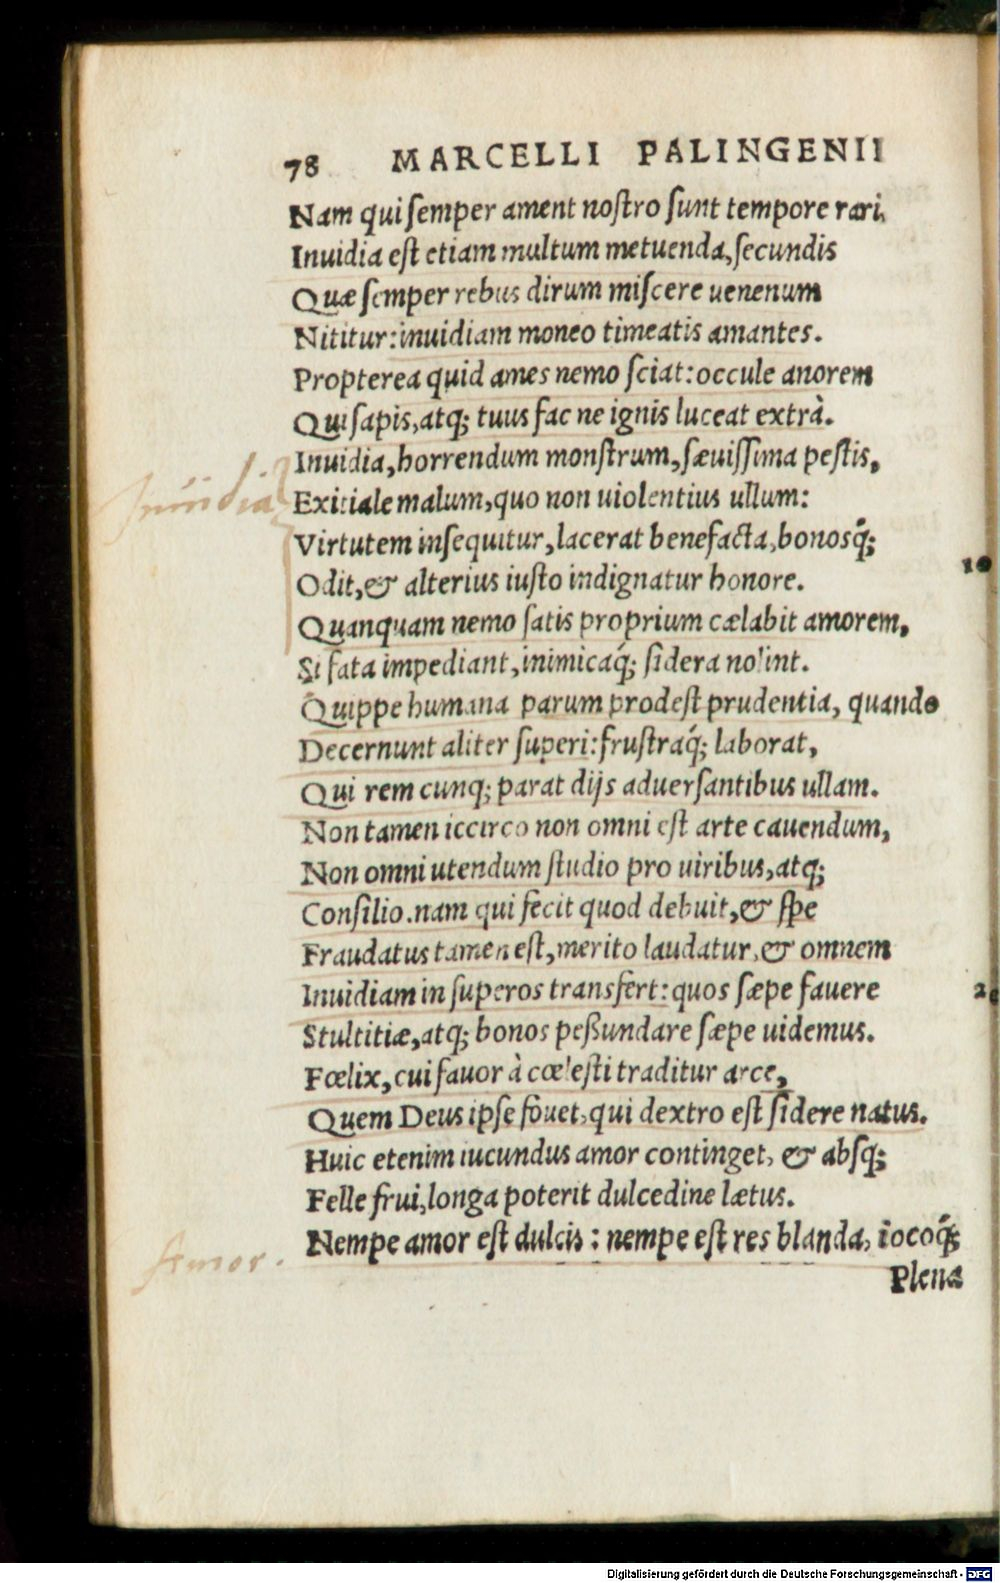 78 MARCELLI PALINGENII
Nam qui ſemper ament noſtro ſunt tempore rari,
Inuidia eſt etiam multum metuenda, ſecundis
Quæ ſemper rebus dirum miſcere uenenum
Nititur: inuidiam moneo timeatis amantes.
Propterea quid ames nemo ſciat: occule anorem
Qui ſapis, atq; tuus fac ne ignis luceat extrà.
Inuidia, horrendum monſtrum, ſæuiſſima peſtis,
Inuidia
Exitiale malum, quo non uiolentius ullum:
Virtutem inſequitur, lacerat benefacta, bonosq́;
Odit, & alterius iuſto indignatur honore.
10
Quanquam nemo ſatis proprium cælabit amorem,
Si fata impediant, inimicaq́; ſidera nolint.
Quippe humana parum prodeſt prudentia, quando
Decernunt aliter ſuperi: fruſtraq́; laborat,
Qui rem cunq; parat dijs aduerſantibus ullam.
Non tamen iccirco non omni eſt arte cauendum,
Non omni utendum ſtudio pro uiribus, atq;
Conſilio. nam qui fecit quod debuit, & ſpe
Fraudatus tamen eſt, merito laudatur, & omnem
Inuidiam in ſuperos transfert: quos ſæpe fauere
Stultitiæ, atq; bonos peßundare ſæpe uidemus.
Fœlix, cui fauor à cœleſti traditur arce,
Quem Deus ipſe fouet, qui dextro eſt ſidere natus.
Huic etenim iucundus amor continget, & abſq́;
Felle frui, longa poterit dulcedine lætus.
Nempe amor eſt dulcis: nempe eſt res blanda, iocoq́;
Amor.
Plena
Digitalisierung gefördert durch die Deutsche Forschungsgemeinschaft - DFG